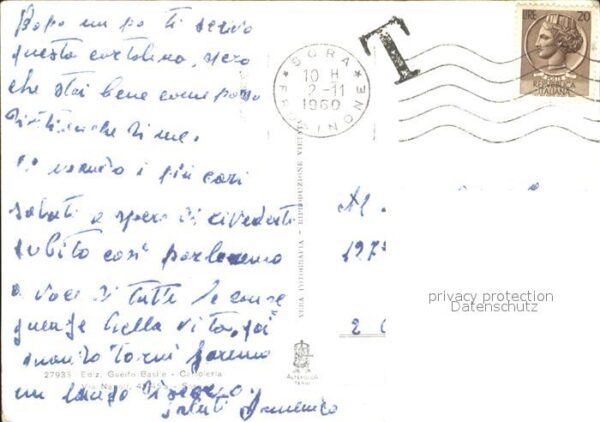 Dopo un po ti scrivo
questa cartolina, spero
che stai bene come posso
dirti anche di me.
Ti mando i più cari
saluti e spero di rivederti
subito così parleremo
a voce di tutte le cose
della vita,
quando torni faremo
un lungo
saluti Domenico
27933 Ediz. Guelfo Basile - Cartoleria
Via Napoli,
VERA FOTOGRAFIA - RIPRODUZIONE VIETATA
ALTEROCCA
TERNI
SORA
10 H
2-11
1960
FROSINONE
T
LIRE 20
REPUBBLICA
ITALIANA
Al
197
2
privacy protection
Datenschutz